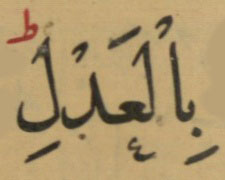 بِالْعَدْلِ ط